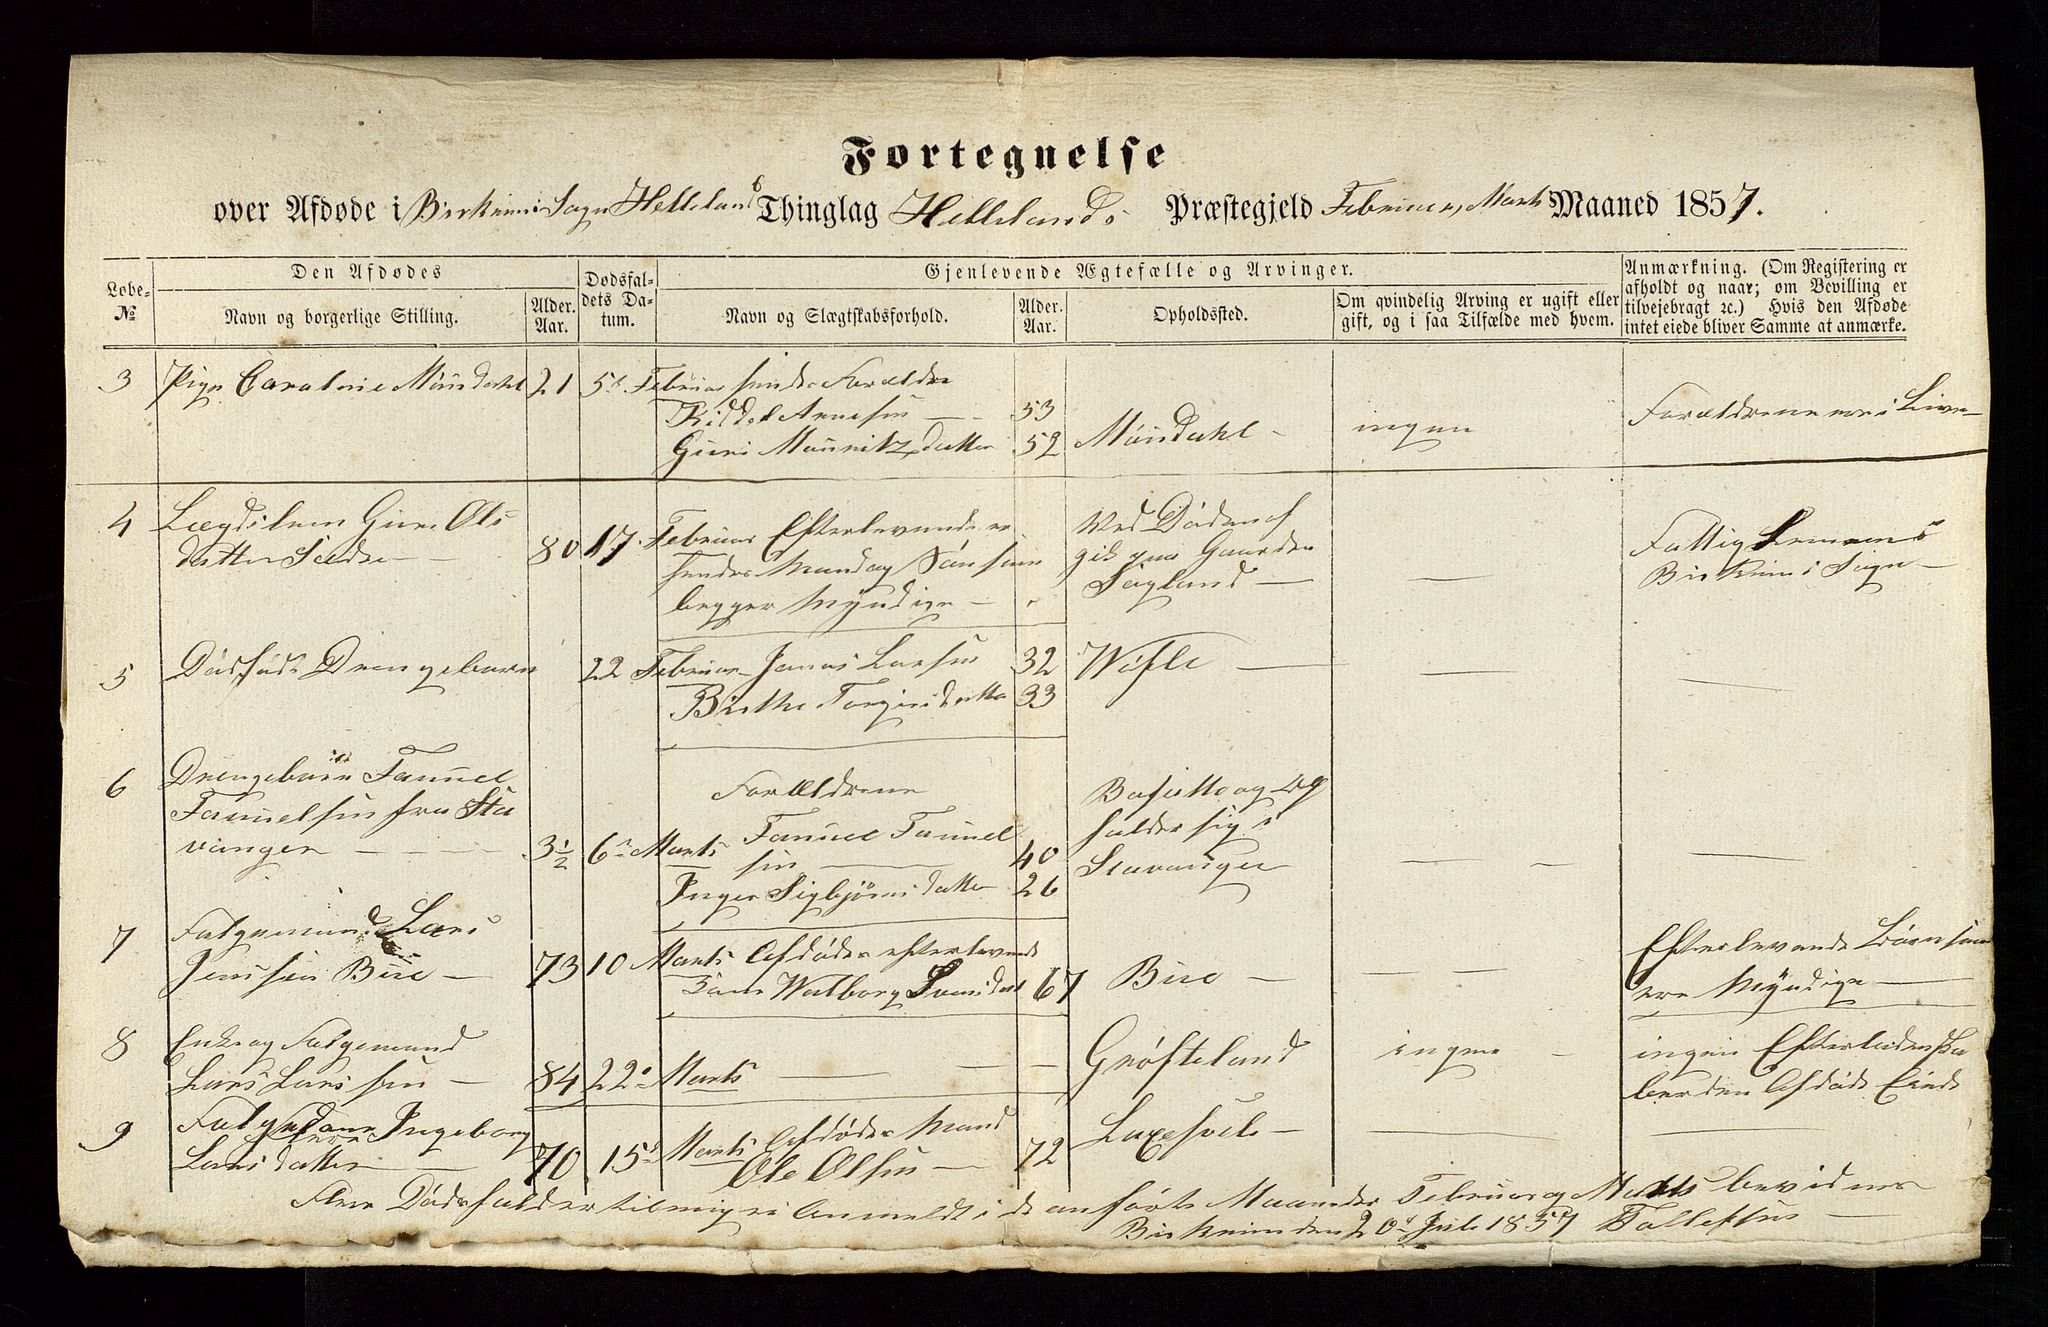 Fortegnelse
over Afdøde i Birkrems Sogn Hellelands Thinglag Hellelands Præstegjeld Februar, Marts Maaned 1857.
Løbe-
№
Den Afdødes
Navn og borgerlige Stilling.
Alder.
Aar.
Dødsfal-
dets Da-
tum.
Gjenlevende Ægtefælle og Arvinger.
Navn og Slægtskabsforhold.
Alder.
Aar.
Opholdssted.
Om qvindelig Arving er ugift eller
gift, og i saa Tilfælde med hvem.
Anmærkning. (Om Registering er
afholdt og naar; om Bevilling er
tilvejebragt ec.) Hvis den Afdøde
intet eiede bliver Samme at anmærke.
3 Pige Caroline Møndahl 21 5te Februar hendes Forældre
Kiddel Arnesen — 53
Guri Mauritzdatter 52 Møndahl — ingen
Forældrene ere i Live —
4 Lægdslem Guri Ols
datter — 80 17 Februar Efterlevende er
hendes Mand og Søn som
begge er Myndige —
Ved Døden af
gik paa Gaarden
Sagland —
—
Fattig Lem
Birkrems Sogn —
5 Dødfødt Drengebarn 22 Februar Jonas Larsen 32
Birthe Torgersdatter 33
—
—
6 Drengebarn Samuel
Samuelsen fra Sta
vanger — 3½ 6te Marts
Forældrene
Samuel Samuel
sen — 40
Inger Sigbjørnsdatter 26
Bosatte og op
holder sig i
Stavanger
— —
—
7 Folgemand Lars
Jenssen Bue — 73 10 Marts Afdødes efterlevende
Kone Walborg Svensdat 67 Bue —
— —
Efterlevende Børn som
ere Myndige —
8 Enke og Folgemand
Lars Larssen — 84 22de Marts — — — Grøfteland ingen —
ingen Efterladenska
ber den Afdøde Eiede
9 Folgekone Ingeborg
Larsdatter — 70 15de Marts Afdødes Mand
Ole Olsen — 72 Laxesvele —
—
—
Flere Dødsfalder til mig ei Anmeldt i de anførte Maaneder Februar og Marts bevidnes
Birkrem den 20de Juli 1857 Tollefsen —